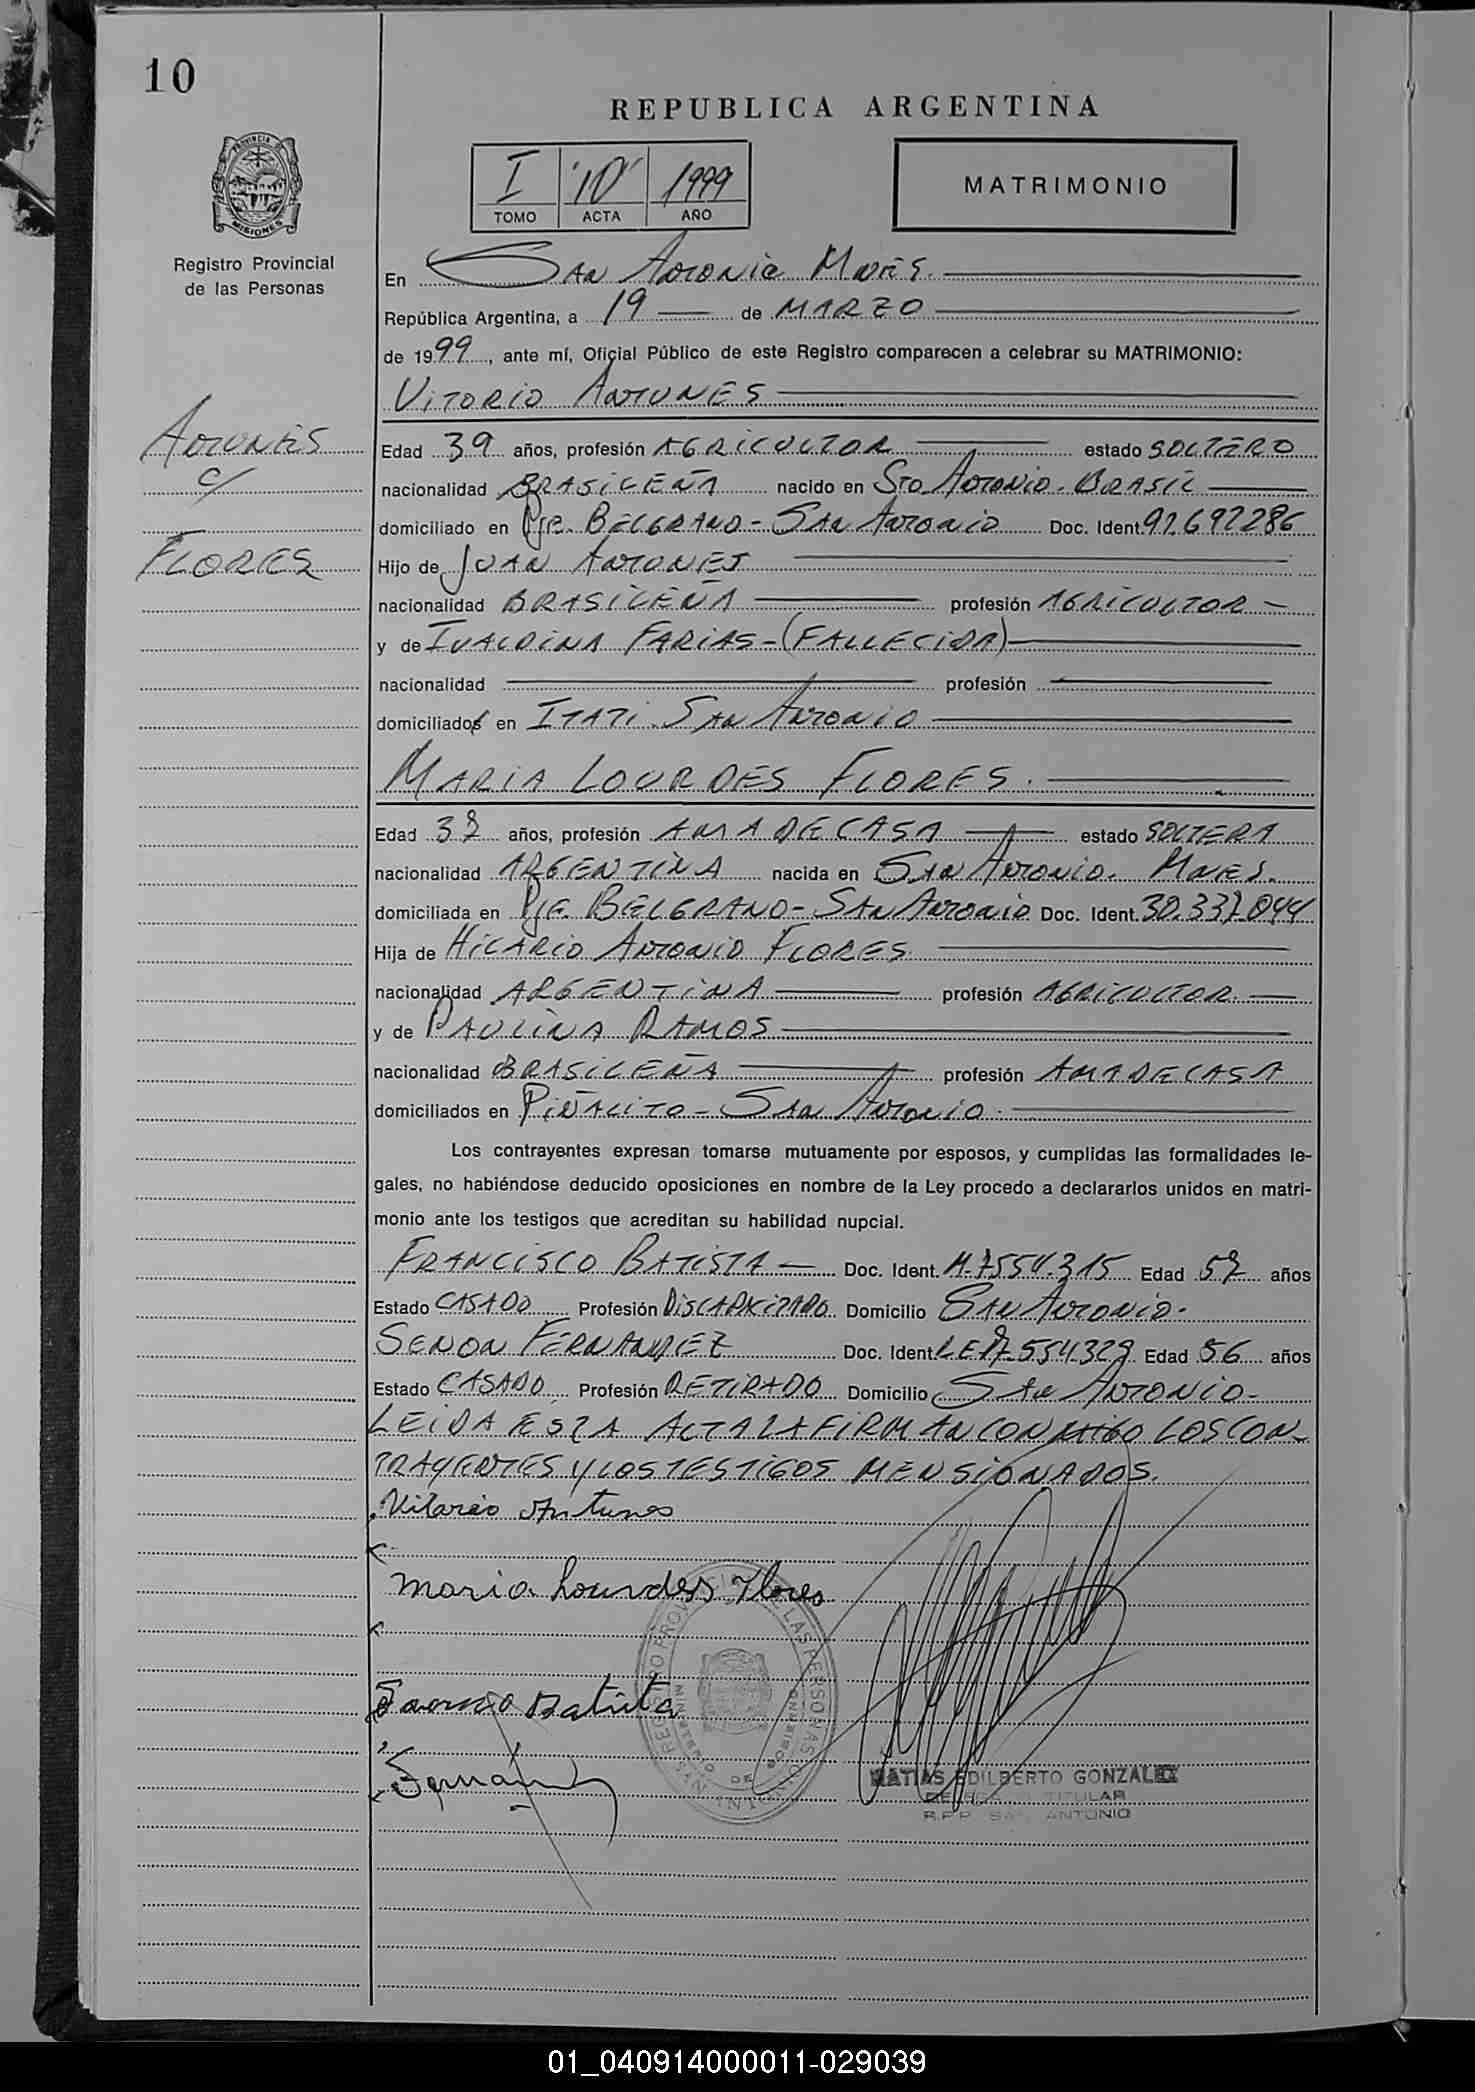 10
REPUBLICA ARGENTINA
I "10" 1999
TOMO ACTA AÑO
MATRIMONIO
PROVINCIA DE
MISIONES
Registro Provincial
de las Personas
En San Antonio Mnes.
República Argentina, a 19 de MARZO
de 1999, ante mí, Oficial Público de este Registro comparecen a celebrar su MATRIMONIO:
VITORIO ANTUNES
ANTUNES
c/
FLORES
Edad 39 años, profesión AGRICULTOR estado SOLTERO
nacionalidad BRASILEÑA nacido en Sto Antonio - BRASIL
domiciliado en Pje. BELGRANO - SAN Antonio Doc. Ident. 92.692286
Hijo de JUAN ANTUNES
nacionalidad BRASILEÑA profesión AGRICULTOR -
y de IVALDINA FARIAS - (FALLECIDA)
nacionalidad profesión
domiciliados en ITATI. SAN Antonio
MARIA LOURDES FLORES.
Edad 32 años, profesión AMA DE CASA estado SOLTERA
nacionalidad ARGENTINA nacida en SAN Antonio. Mnes.
domiciliada en Pje. BELGRANO - SAN Antonio Doc. Ident. 30.337.044
Hija de HILARIO Antonio FLORES
nacionalidad ARGENTINA profesión AGRICULTOR.
y de PAULINA RAMOS
nacionalidad BRASILEÑA profesión AMA DE CASA
domiciliados en PIÑALITO - SAN Antonio.
Los contrayentes expresan tomarse mutuamente por esposos, y cumplidas las formalidades le-
gales, no habiéndose deducido oposiciones en nombre de la Ley procedo a declararlos unidos en matri-
monio ante los testigos que acreditan su habilidad nupcial.
FRANCISCO BATISTA Doc. Ident. M.7554.315 Edad 52 años
Estado CASADO Profesión DISCAPACITADO Domicilio SAN Antonio.
SENON FERNANDEZ Doc. Ident. Edad 56 años
Estado CASADO Profesión RETIRADO Domicilio SAN Antonio -
LEIDA ESTA ACTA LA FIRMAN CONMIGO LOS CON-
TRAYENTES Y LOS TESTIGOS MENSIONADOS.
Vitorio Antunes
Maria Lourdes Flores
Batista
REGISTRO PROVINCIAL DE LAS PERSONAS
MINISTERIO DE GOBIERNO
MATIAS EDILBERTO GONZALEZ
DELEGADO TITULAR
R.P.P. SAN ANTONIO
01_040914000011-029039